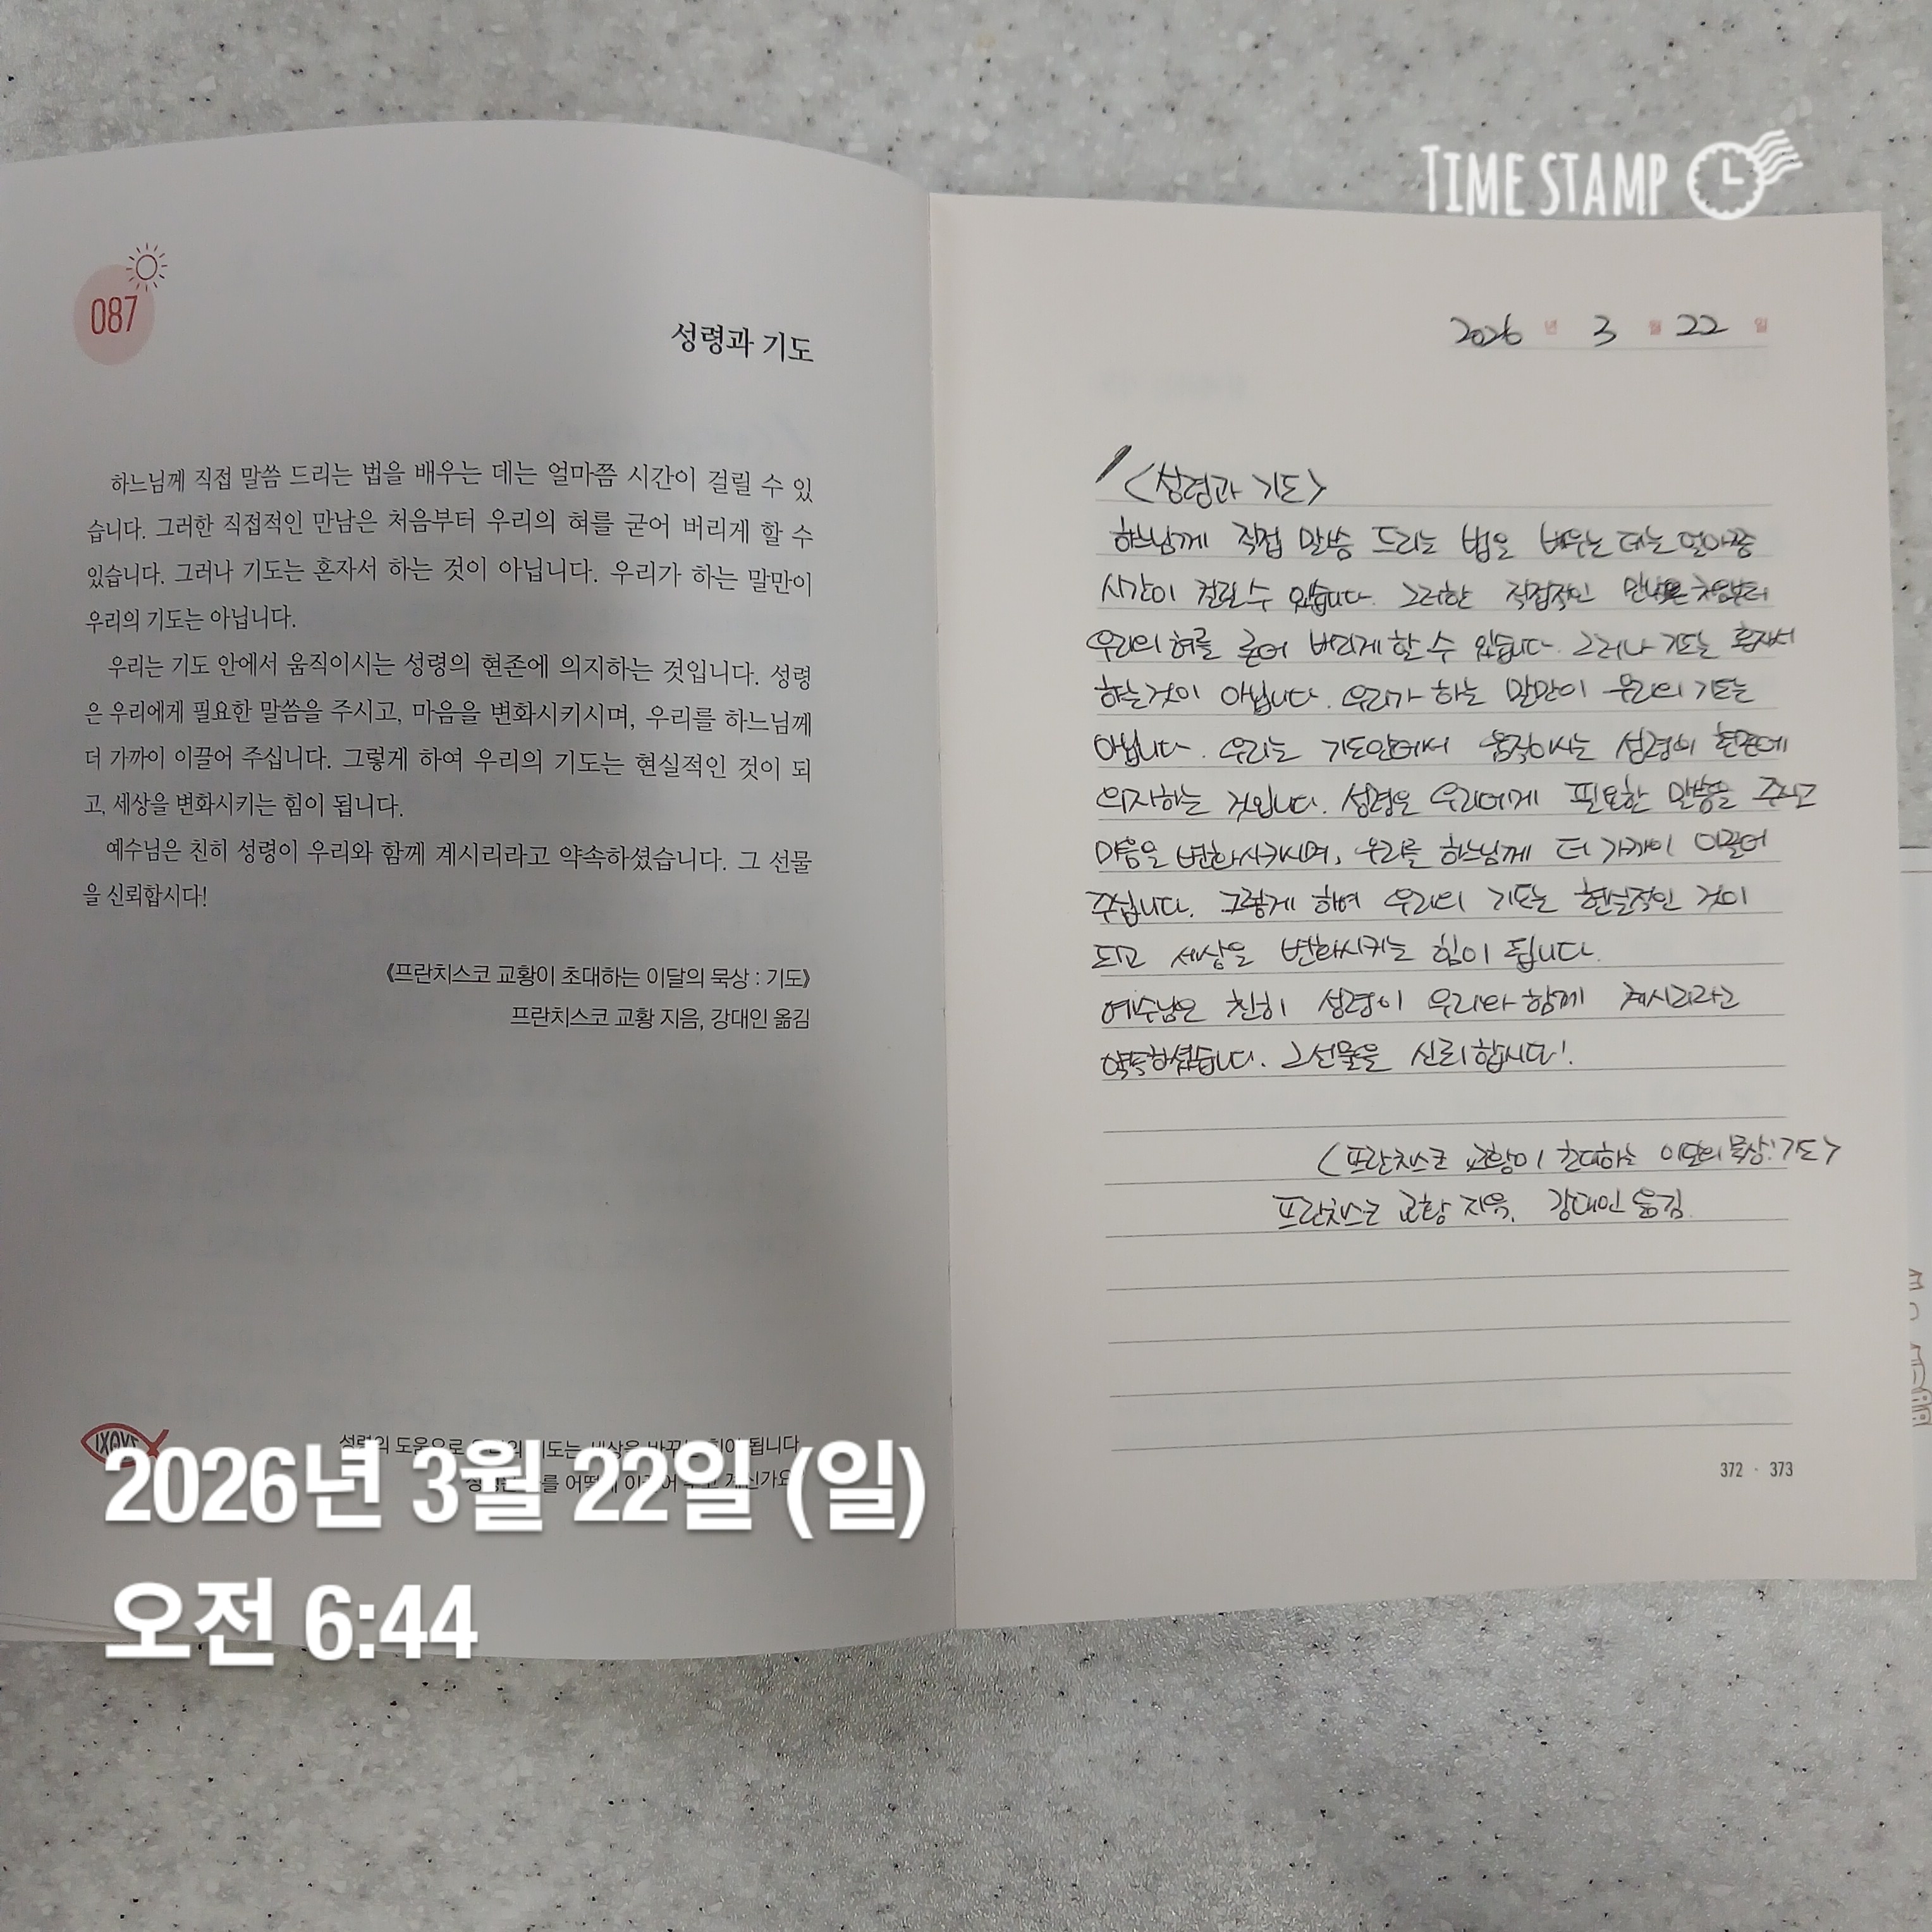 TIME STAMP
087
성령과 기도
하느님께 직접 말씀 드리는 법을 배우는 데는 얼마쯤 시간이 걸릴 수 있
습니다. 그러한 직접적인 만남은 처음부터 우리의 혀를 굳어 버리게 할 수
있습니다. 그러나 기도는 혼자서 하는 것이 아닙니다. 우리가 하는 말만이
우리의 기도는 아닙니다.
우리는 기도 안에서 움직이시는 성령의 현존에 의지하는 것입니다. 성령
은 우리에게 필요한 말씀을 주시고, 마음을 변화시키시며, 우리를 하느님께
더 가까이 이끌어 주십니다. 그렇게 하여 우리의 기도는 현실적인 것이 되
고, 세상을 변화시키는 힘이 됩니다.
예수님은 친히 성령이 우리와 함께 계시리라고 약속하셨습니다. 그 선물
을 신뢰합시다!
《프란치스코 교황이 초대하는 이달의 묵상 : 기도》
프란치스코 교황 지음, 강대인 옮김
성령의 도움으로 기도는 세상을 바꾸는 힘이 됩니다
2026년 3월 22일
<성령과 기도>
하느님께 직접 말씀 드리는 법을 배우는 데는 얼마쯤
시간이 걸릴 수 있습니다. 그러한 직접적인 만남은 처음부터
우리의 혀를 굳어 버리게 할 수 있습니다. 그러나 기도는 혼자서
하는 것이 아닙니다. 우리가 하는 말만이 우리의 기도는
아닙니다. 우리는 기도안에서 움직이시는 성령의 현존에
의지하는 것입니다. 성령은 우리에게 필요한 말씀을 주시고
마음을 변화시키시며, 우리를 하느님께 더 가까이 이끌어
주십니다. 그렇게 하여 우리의 기도는 현실적인 것이
되고 세상을 변화시키는 힘이 됩니다.
예수님은 친히 성령이 우리와 함께 계시리라고
약속하셨습니다. 그 선물을 신뢰합시다!
<프란치스코 교황이 초대하는 이달의 묵상:기도>
프란치스코 교황 지음, 강대인 옮김
372 · 373
2026년 3월 22일 (일)
오전 6:44